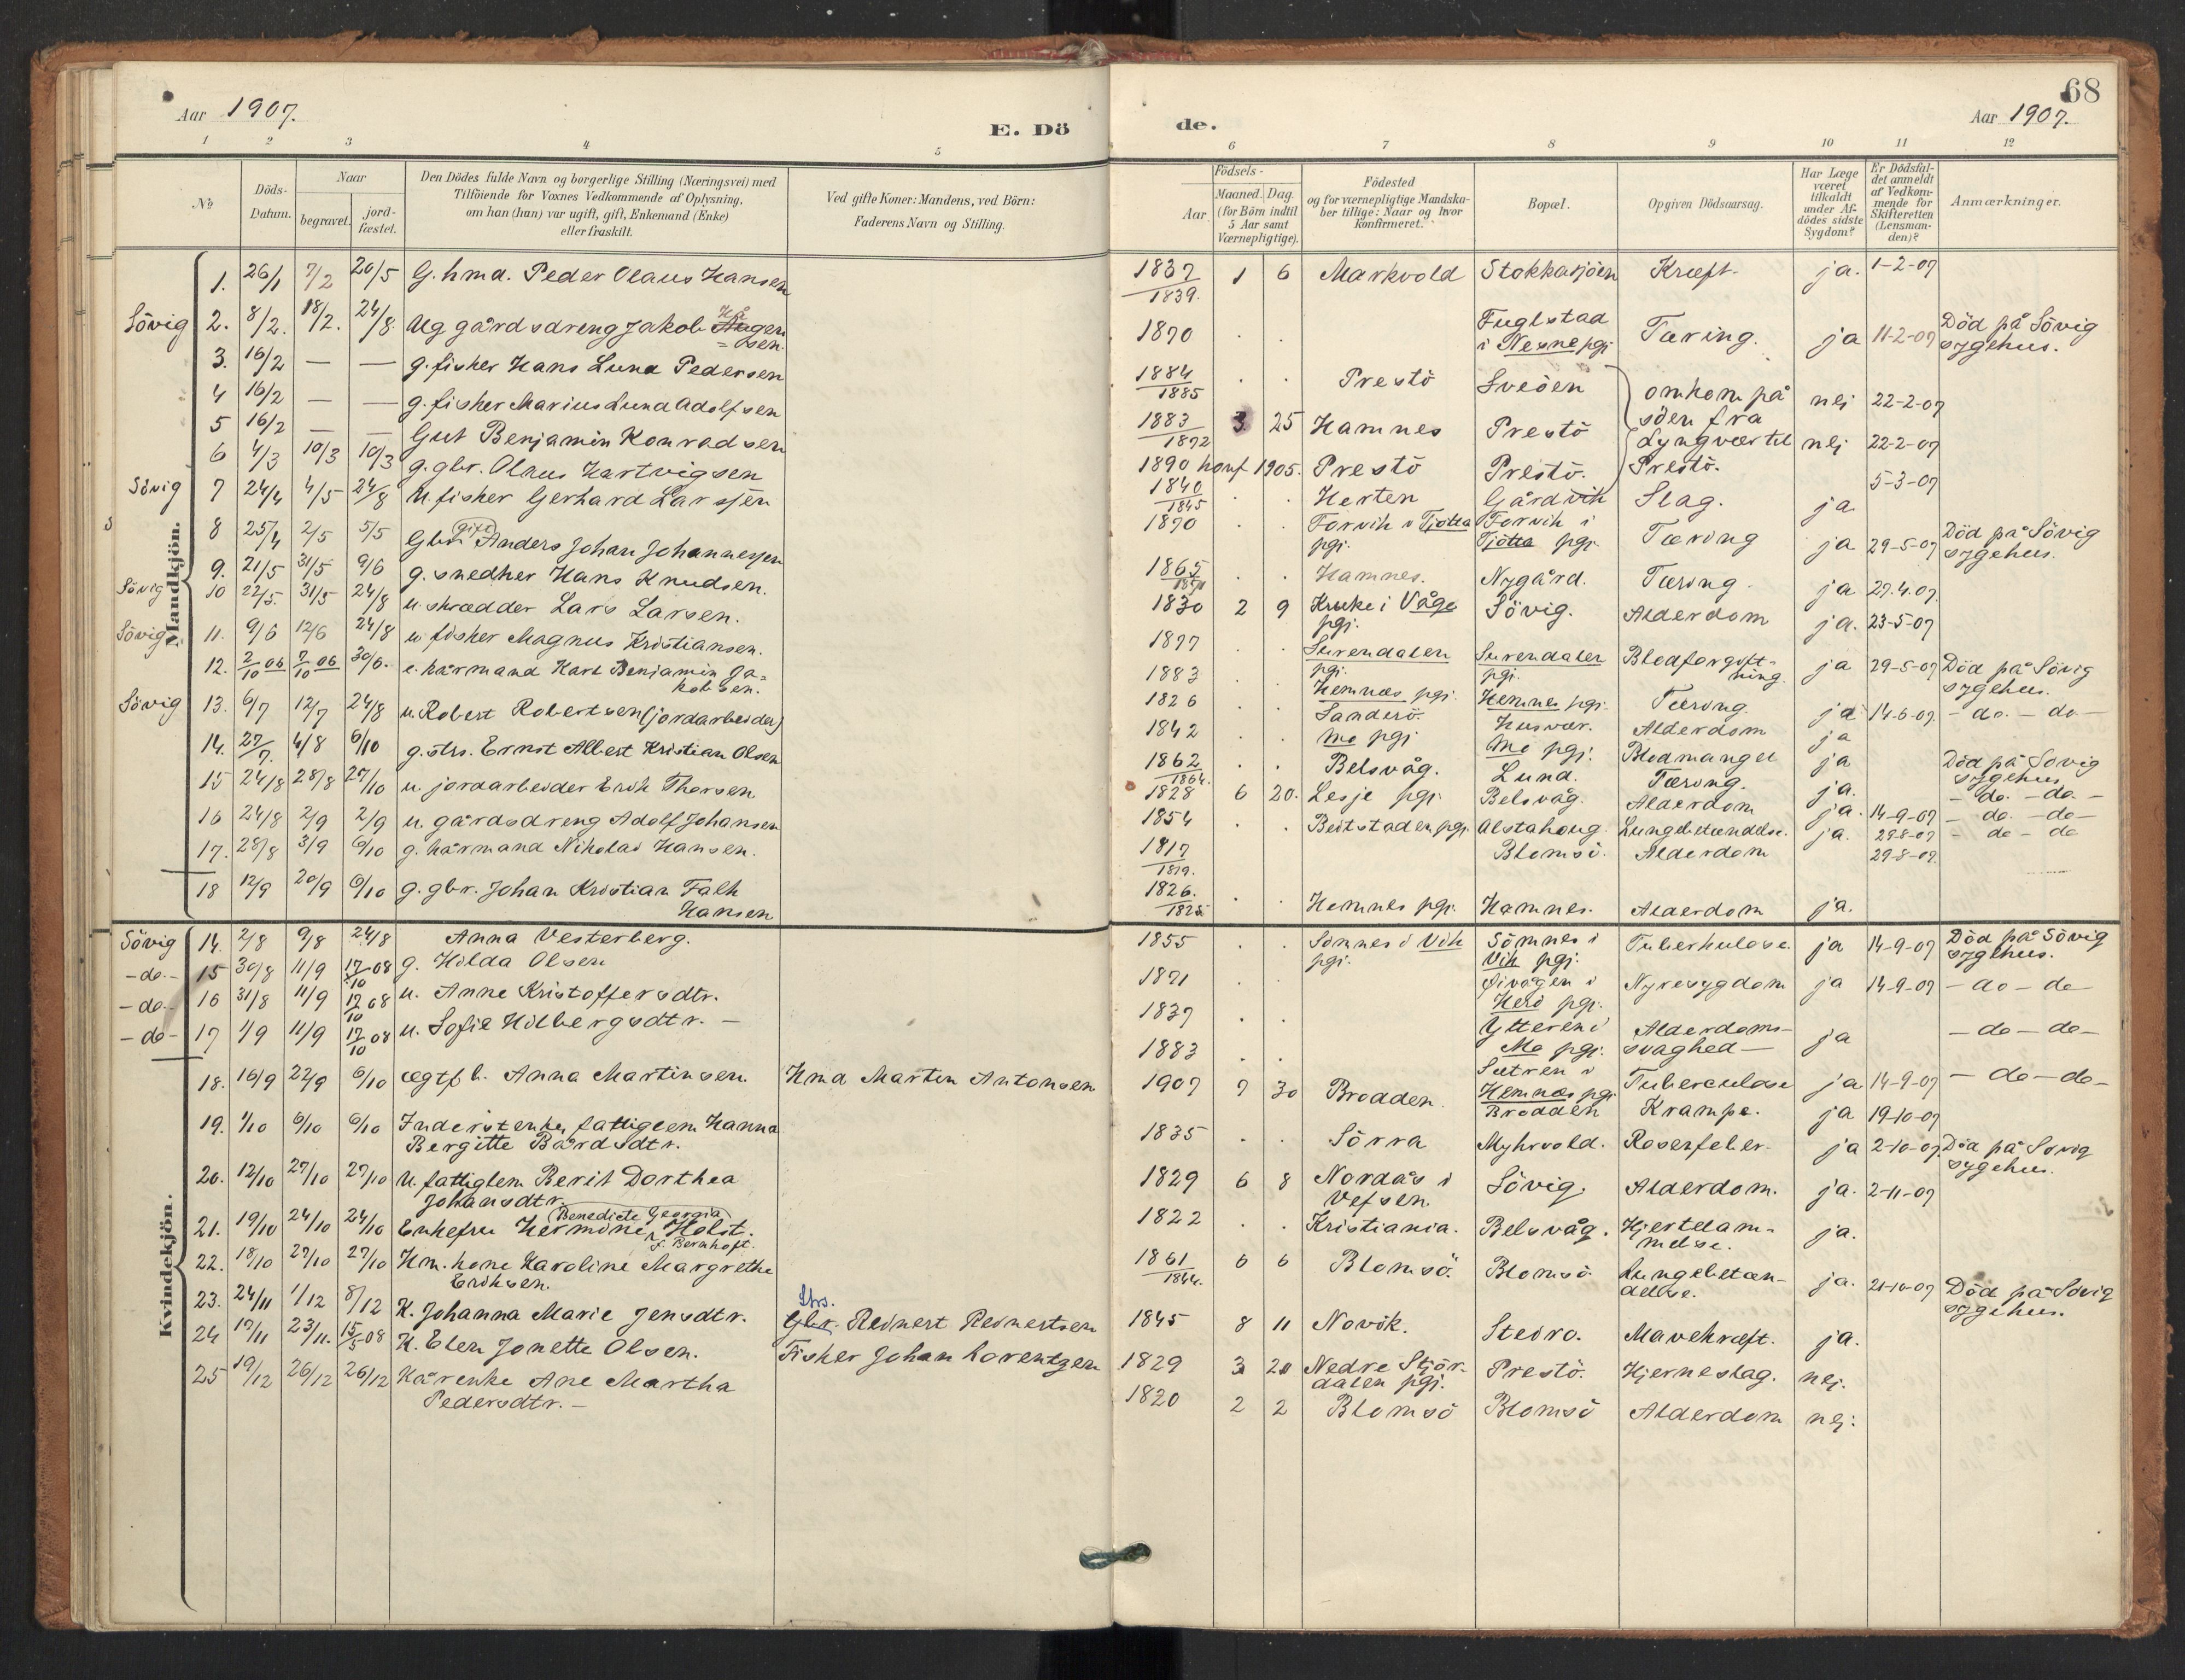 Aar 1907.
E. Dö
1 2 3 4 5
№
Döds-
Datum.
Naar
begravet.
jord-
fæstet.
Den Dödes fulde Navn og borgerlige Stilling (Næringsvei) med
Tilföiende for Voxnes Vedkommende af Oplysning,
om han (hun) var ugift, gift, Enkemand (Enke)
eller fraskilt.
Ved gifte Koner: Mandens, ved Börn:
Faderens Navn og Stilling.
Mandkjön.
1. 26/1 7/2 20/5 G. hmd. Peder Olaus Hansen
Sövig 2. 8/2. 18/2. 24/8. Ug gårdsdreng Jakob
3. 16/2 — — g. fisker Hans Lund Pedersen
4 16/2 — — g. fisker Marius Lund Adolfsen
5 16/2 — — Gut Benjamin Konradsen
6 4/3 10/3 10/3 g. gbr. Olaus Hartvigsen
Sövig 7 24/4 4/5 24/8 U. fisker Gerhard Larssen
8 25/4 2/5 5/5 Gbr. gift Anders Johan Johannessen
9. 21/5 31/5 9/6 g. snedker Hans Knudsen.
Sövig 10 22/5. 31/5 24/8 u. skrædder Lars Larsen.
Sövig 11. 9/6 12/6 24/8 u. fisker Magnus Kristiansen.
12. 2/10 06 7/10 06 30/6. e. kårmand Karl Benjamin Ja=
kobsen.
Sövig 13. 6/7 12/7 24/8 u. Robert Robertsen (jordarbeider)
14. 27/7. 4/8 6/10 g. strs. Ernst Albert Kristian Olsen
15 24/8 28/8 27/10 u. jordarbeider Erik Thorsen
16 24/8 2/9 2/9 u. gårdsdreng Adolf Johansen
17. 28/8 3/9 6/10 g. kårmand Nikolai Hansen.
18 12/9 20/9 6/10 g. gbr. Johan Kristian Falk
Hansen
Kvindekjön.
Sövig 14. 2/8 9/8 24/8 Anna Vesterberg.
-do.- 15 30/8 11/9 17/10 08 g. Hilda Olsen
-do.- 16 31/8 11/9 17/10 08 u. Anne Kristoffersdtr.
-do- 17 1/9 11/9 17/10 08 u. Sofie Hilbergsdtr. —
18. 16/9 22/9 6/10 ægtf b. Anna Martinsen. Hmd Martin Antonsen
19. 1/10 6/10 6/10 Inderstenke, fattiglem Hanna
Bergitte Bårdsdtr.
20. 12/10 27/10 27/10 U. fattiglem Berit Dorthea
Johansdtr.
21. 19/10 24/10 24/10 Enkefru Hermine Benedicte Georgia Holst.
f. Bernhoft.
22. 18/10 27/10 27/10 Hm. kone Karoline Margrethe
Eriksen.
23. 24/11 1/12 8/12 K. Johanna Marie Jensdtr. Strs.
Gbr. Reinert Reinertsen
24 17/11 23/11. 15/5 08 K. Elen Jonette Olsen. Fisker Johan Lorentzen
25 19/12 26/12 26/12 Kårenke Ane Martha
Pedersdtr. —
68
de.
Aar 1907.
6 7 8 9 10 11 12
Födsels-
Aar.
Maaned. Dag.
(for Börn indtil
5 Aar samt
Værnepligtige).
Födested
og for værnepligtige Mandska-
ber tillige: Naar og hvor
konfirmeret.
Bopæl.
Opgiven Dödsaarsag.
Har Læge
været
tilkaldt
under Af-
dödes sidste
Sygdom?
Er Dödsfal-
det anmeldt
af Vedkom-
mende for
Skifteretten
(Lensman-
den)?
Anmærkninger.
1837/1839. 1 6 Markvold Stokkasjöen Kræft. ja. 1-2-07
1870 . . Fuglstad
i Nesne pgj Tæring. ja 11-2-07 Död på Sövig
sygehus.
1884/1885 . . Prestö Sveöen omkom på
söen fra
Lyngvær til
Prestö. nej 22-2-07
1883/1872 3 25 Hamnes Prestö nej 22-2-07
1890 konf 1905. Prestö Prestö. 5-3-07
1840/1845 . . Herten Gårdvik Slag. ja
1870 . . Forvik i Tjötta
pgj. Forvik i
Tjötta pgj. Tæring ja 29-5-07 Död på Sövig
sygehus.
1865/1870 . . Hamnes. Nygård. Tæring. ja 27.4.07.
1830 2 9 Kruke i Våge
pgj. Sövig. Alderdom ja. 23-5-07
1877 . . Surendalen
pgj. Surendalen
pgj. Blodforgift-
ning. ja 29-5-07 Död på Sövig
sygehus.
1883 . . Hemnæs pgj. Hemnes pgj. Tæring. ja 14-6-07. - do. - do -
1826 . . Sanderö. Husvær. Alderdom ja
1842 . . Mo pgj Mo pgj. Blodmangel ja Död på Sövig
sygehus
1862/1864. . . Belsvåg. Lund. Tæring. ja. - do. - do. -
1828 6 20. Lesje pgj. Belsvåg. Alderdom ja. 14-9-07 - do. - do -
1854 . . Beitstaden pgj. Alstahoug. Lungebetændelse. ja. 29-8-07 - do - do
1817/1819. Blomsö. Alderdom 29-8-07.
1826./1825 . . Hemnes pgj. Hamnes. Alderdom ja.
1855 . . Sömnes i Vik
pgj. Sömnes i
Vik pgj. Tuberkulose ja 14-9-07 Död på Sövig
sygehus.
1871 . . i
Herö pgj. Nyresygdom ja 14-9-07 - do - do
1837 . . Ytteren i
Mo pgj. Alderdoms-
svaghed — ja - do - do -
1883 . . Sætren i
Hemnæs pgj Tuberculose ja 14-9-07 - do - do -
1907 7 30 Brodden Brodden Krampe. ja 19-10-07
1835 . . Sörra Myhrvold. Rosenfeber. ja 2-10-07 Död på Sövig
sygehus.
1829 6 8 Nordås i
Vefsen. Sövig. Alderdom. ja. 2-11-07
1822 . . Kristiania. Belsvåg. Hjertelam-
melse. ja.
1861/1844. 6 6 Blomsö. Blomsö Lungebetæn-
delse. ja. 21-10-07 Död på Sövig
sygehus.
1845 8 11 Novik. Steiro. Mavekræft. ja.
1829 3 20 Nedre Stjör-
dalen pgj. Prestö. Hjerneslag. nej.
1820 2 2 Blomsö Blomsö Alderdom nej.